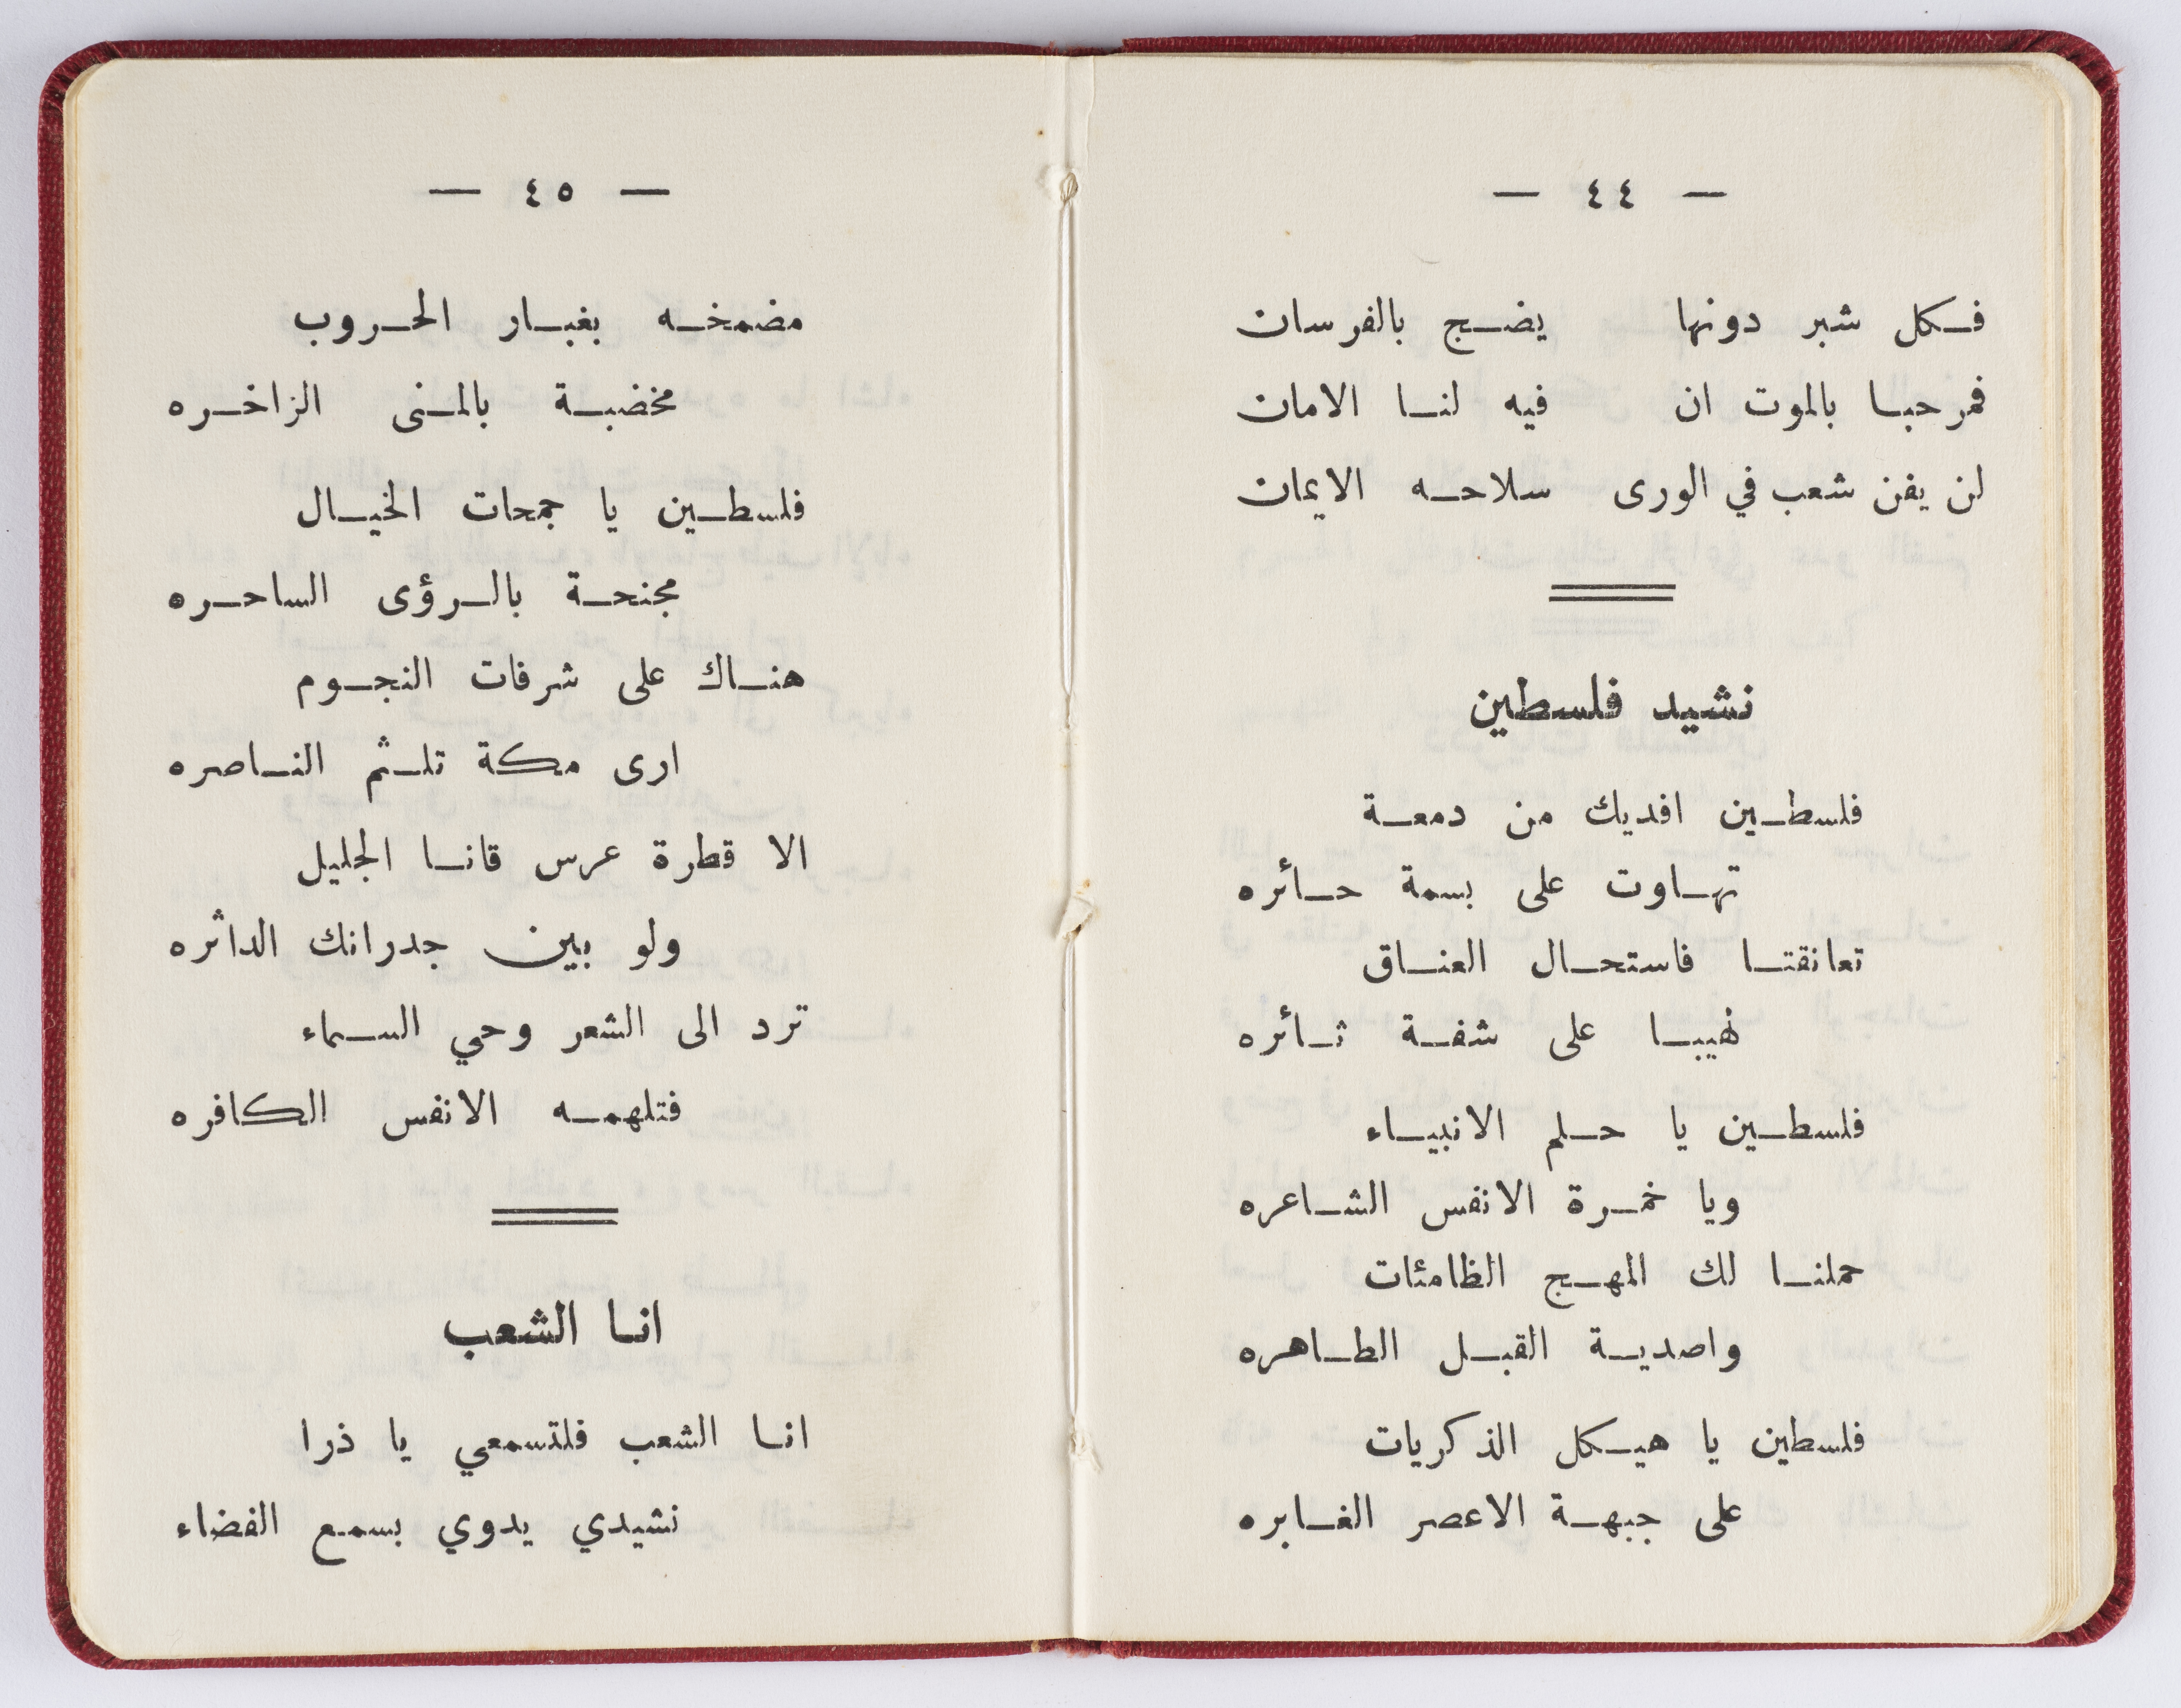 — ٤٤ —
فكل شبر دونها يضج بالفرسان
فمرحبا بالموت ان فيه لنا الامان
لن يفن شعب في الورى سلاحه الايمان
نشيد فلسطين
فلسطين افديك من دمعة
تهاوت على بسمة حائره
تعانقتا فاستحال العناق
لهيبا على شفة ثائره
فلسطين يا حلم الانبياء
ويا خمرة الانفس الشاعره
حملنا لك المهج الظامئات
واصدية القبل الطاهره
فلسطين يا هيكل الذكريات
على جبهة الاعصر الغابره
— ٤٥ —
مضمخه بغبار الحروب
مخضبة بالمنى الزاخره
فلسطين يا جمحات الخيال
مجنحة بالرؤى الساحره
هناك على شرفات النجوم
ارى مكة تلثم الناصره
الا قطرة عرس قانا الجليل
ولو بين جدرانك الداثره
ترد الى الشعر وحي السماء
فتلهمه الانفس الكافره
انا الشعب
انا الشعب فلتسمعي يا ذرا
نشيدي يدوي بسمع الفضاء